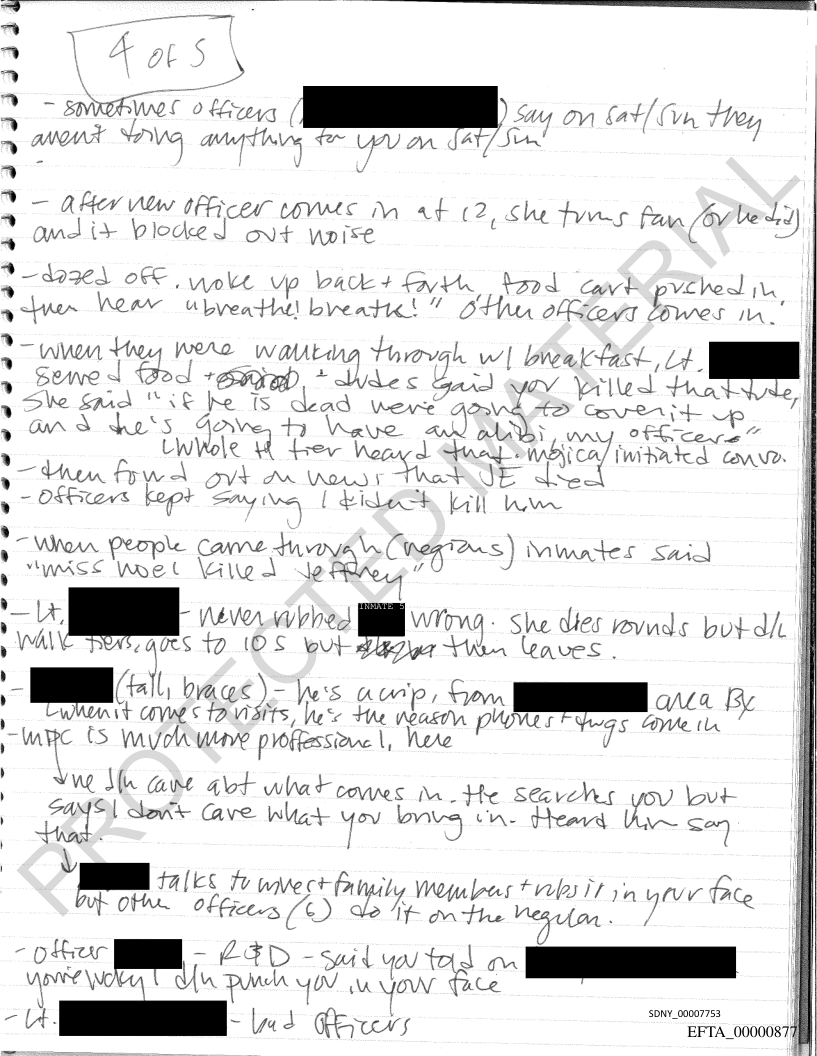 4 of 5
- sometimes officers ( ) say on sat/sun they
aren't doing anything for you on sat/sun
- after new officer comes in at 12, she turns fan (or he did)
and it blocked out noise
- dozed off. woke up back + forth, food cart pushed in,
then hear "breathe! breath!" other officers comes in.
- when they were walking through w/ breakfast, Lt.
served food + dudes said you killed that dude,
she said "if he is dead we're going to cover it up
and he's going to have an alibi, my officers"
whole H tier heard that. mojica/initiated convo.
- then found out on news that JE died
- officers kept saying I didn't kill him
- when people came through (regions) inmates said
"miss noel killed Jeffrey"
- Lt. - never rubbed INMATE 5 wrong. she does rounds but d/n
walk tiers, goes to 10 S but then leaves.
- (tall, braces) - he's a crip, from area Bx
when it comes to visits, he's the reason phones + drugs come in
- MDC is much more proffessional, here
he d/n care abt what comes in. He searches you but
says I don't care what you bring in. Heard him say
that.
talks to wives + family members + rubs it in your face
but other officers (6) do it on the regular.
- officer - R&D - said you told on
you're lucky I d/n punch you in your face
- Lt. - bad officers
PROTECTED MATERIAL
SDNY_00007753
EFTA_00000877